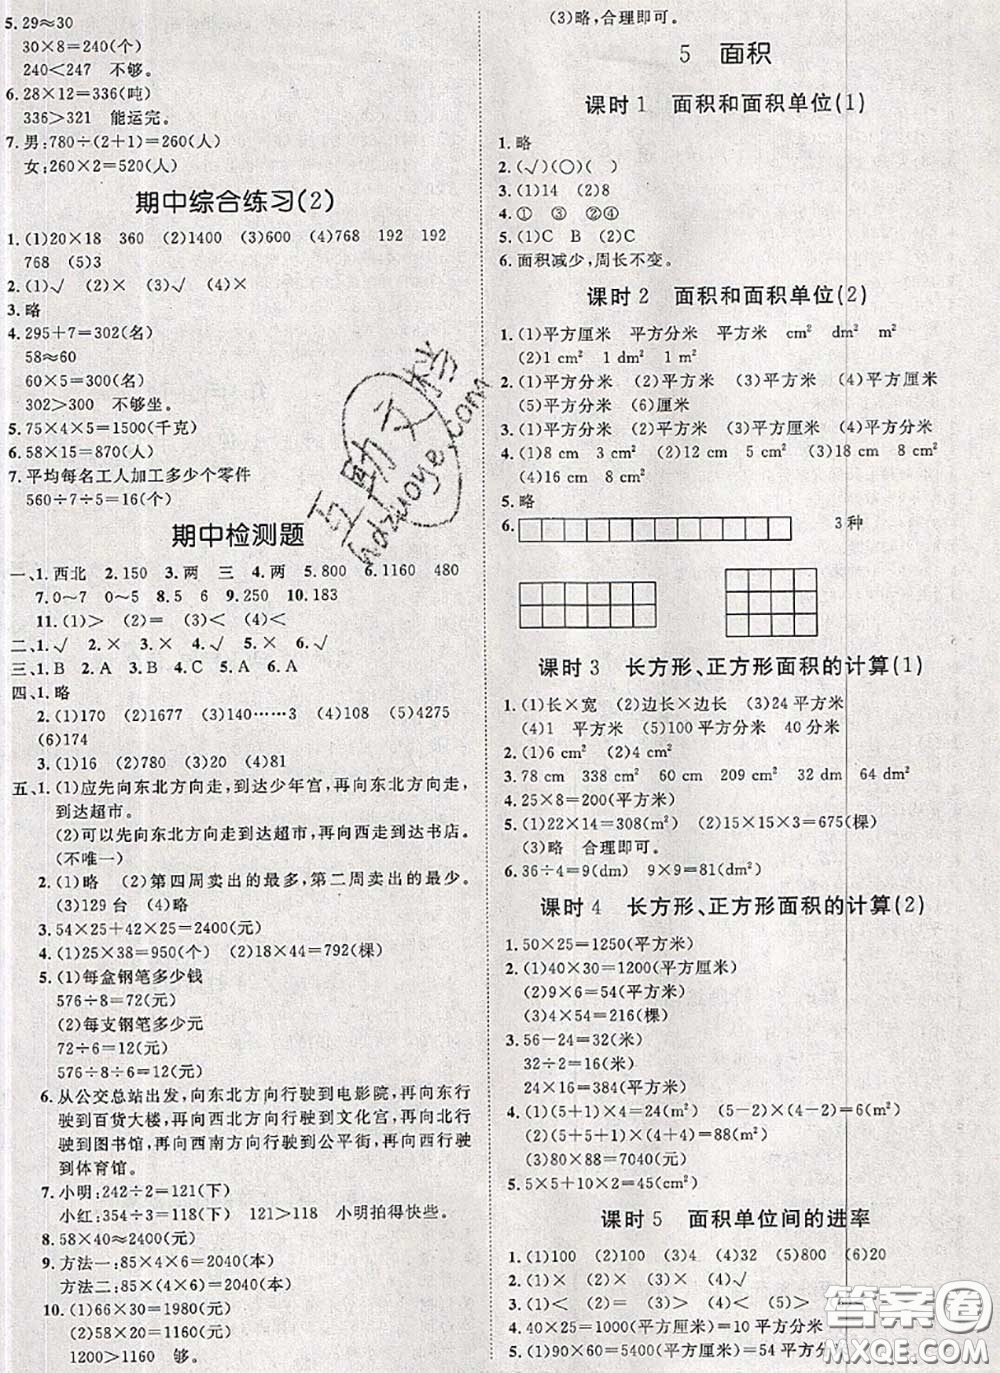 5. 29≈30
30×8=240(个)
240<247 不够。
6. 28×12=336(吨)
336>321 能运完。
7. 男:780÷(2+1)=260(人)
女:260×2=520(人)
期中综合练习(2)
1. (1)20×18 360 (2)1400 (3)600 (4)768 192 192
768 (5)3
2. (1)√ (2)× (3)√ (4)×
3. 略
4. 295+7=302(名)
58≈60
60×5=300(名)
302>300 不够坐。
5. 75×4×5=1500(千克)
6. 58×15=870(人)
7. 平均每名工人加工多少个零件
560÷7÷5=16(个)
期中检测题
一、1. 西北 2. 150 3. 两 三 4. 两 5. 800 6. 1160 480
7. 0~7 0~5 8. 5 6 9. 250 10. 183
11. (1)> (2)= (3)< (4)<
二、1. √ 2. × 3. × 4. × 5. × 6. √
三、1. B 2. A 3. B 4. B 5. A 6. A
四、1. 略
2. (1)170 (2)1677 (3)140……3 (4)108 (5)4275
(6)174
3. (1)16 (2)1540 (3)240 (4)81
五、1. (1)应先向东北方向走,到达少年宫,再向东北方向走,
到达超市。
(2)可以先向东北方向走到达超市,再向西走到达书店。
(不唯一)
2. (1)略 (2)第四周卖出的最多,第二周卖出的最少。
(3)129 台 (4)略
3. 54×25+42×25=2400(元)
4. (1)25×38=950(个) (2)18×44=792(棵)
5. (1)每盒钢笔多少钱
576÷8=72(元)
(2)每支钢笔多少元
72÷6=12(元)
576÷8÷6=12(元)
6. 从公交总站出发,向东北方向行驶到电影院,再向东行
驶到百货大楼,再向西北方向行驶到文化宫,再向北行
驶到图书馆,再向西南方向行驶到公平街,再向西行驶
到体育馆。
7. 小明:242÷2=121(下)
小红:354÷3=118(下) 121>118 小明拍得快些。
8. 58×40≈2400
9. 方法一:85×4×6=2040(本)
方法二:85×(4×6)=2040(本)
10. (1)66×30=1980(元)
(2)58×20=1160(元)
1200>1160 够。
(3)略,合理即可。
5 面积
课时 1 面积和面积单位(1)
1. 略
2. (√)(○)( )
3. (1)14 (2)8
4. ① ③ ②④
5. (1)C B (2)C
6. 面积减少,周长不变。
课时 2 面积和面积单位(2)
1. (1)平方厘米 平方分米 平方米 cm² dm² m²
(2)1 cm² 1 dm² 1 m²
2. (1)平方分米 (2)平方厘米 (3)平方米 (4)平方厘米
(5)平方分米 (6)厘米
3. (1)平方米 (2)平方分米 (3)平方厘米 (4)厘米
4. (1)8 cm 3 cm² (2)10 cm 5 cm² (3)18 cm 8 cm²
(4)16 cm 8 cm²
5. 略
6. 3 种
课时 3 长方形、正方形面积的计算(1)
1. (1)长×宽 (2)边长×边长 (3)24 平方米
(4)1 平方米 (5)100 平方分米 40 分米
2. (1)6 cm² (2)4 cm²
3. 78 cm 338 cm² 60 cm 209 cm² 32 dm 64 dm²
4. 25×8=200(平方米)
5. (1)22×14=308(m²) (2)15×15×3=675(棵)
(3)略 合理即可。
6. 36÷4=9(dm) 9×9=81(dm²)
课时 4 长方形、正方形面积的计算(2)
1. 50×25=1250(平方米)
2. (1)40×30=1200(平方厘米)
(2)9×6=54(平方米)
(3)4×54=216(棵)
3. 56-24=32(米)
32÷2=16(米)
24×16=384(平方米)
4. (1)(5+1)×4=24(m²) (5-2)×(4-2)=6(m²)
(2)(5+5+1)×(4+4)=88(m²)
(3)80×88=7040(元)
5. 5×5+10×2=45(m²)
课时 5 面积单位间的进率
1. (1)100 (2)100 (3)4 (4)32 (5)800 (6)20
2. (1)√ (2)× (3)× (4)√
3. (1)< (2)> (3)= (4)< (5)>
4. 40×25=1000(平方厘米)=10 平方分米
5. (1)90×60=5400(平方厘米)=54 平方分米
互助文档
hdzuoye.com
答案圈
MXQE.COM